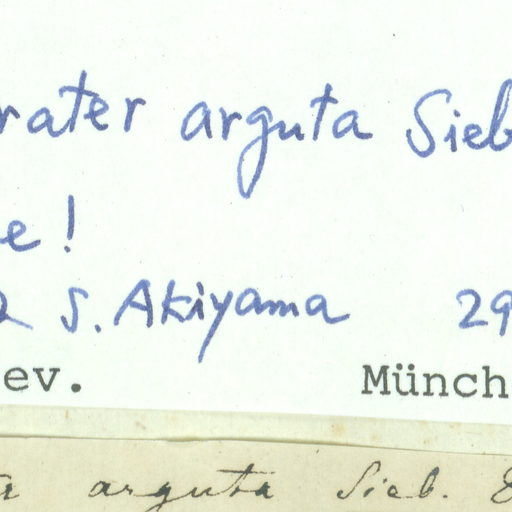 rater arguta Sieb
e!
S. Akiyama 29
ev. Münch
a arguta Sieb.